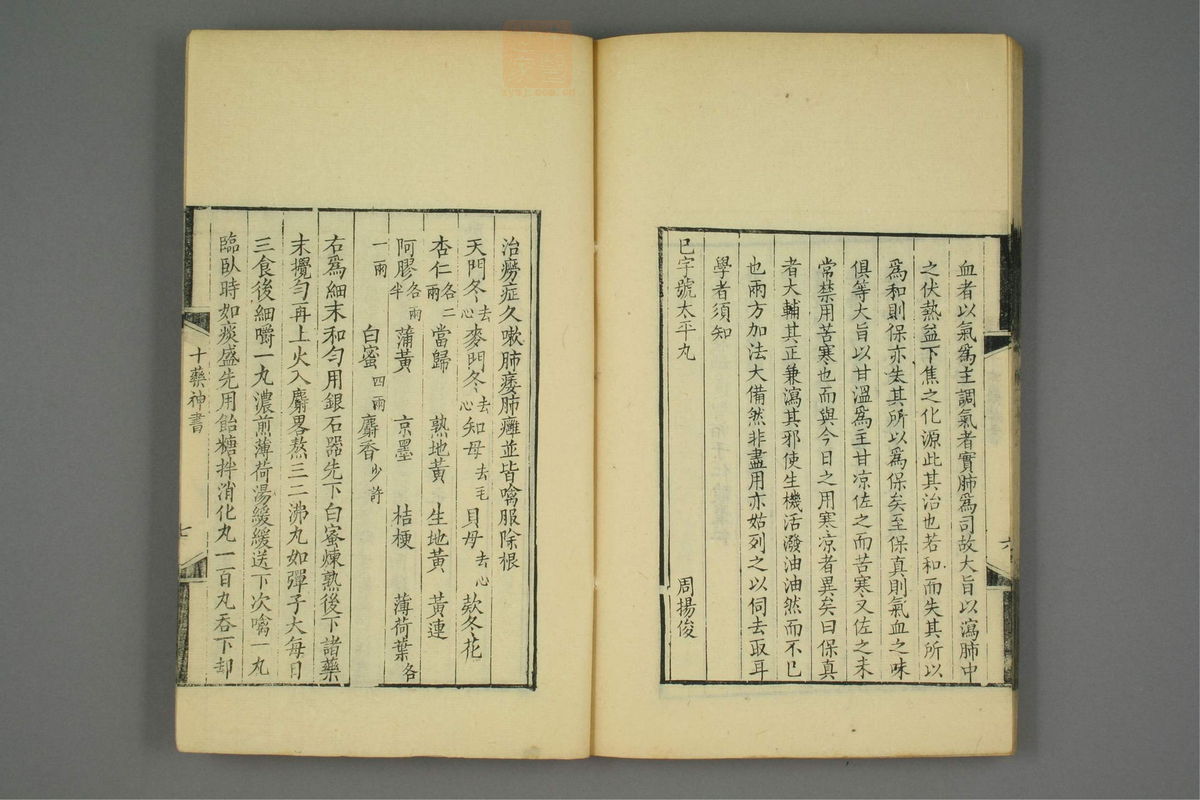 血者以氣為主調氣者實肺為司故大旨以瀉肺中
之伏熱益下焦之化源此其治也若和而失其所以
為和則保亦失其所以為保矣至保真則氣血之味
俱等大旨以甘溫為主甘凉佐之而苦寒又佐之未
常禁用苦寒也而與今日之用寒凉者異矣曰保真
者大輔其正兼瀉其邪使生機活潑油油然而不已
也兩方加法大備然非盡用亦姑列之以伺去取耳
學者須知 周揚俊
巳字號太平丸
六
治癆症久嗽肺痿肺癰並皆噙服除根
天門冬去心 麥門冬去心 知母去毛 貝母去心 款冬花
杏仁各二兩 當歸 熟地黃 生地黃 黃連
阿膠各兩半 蒲黃 京墨 桔梗 薄荷葉各
一兩 白蜜四兩 麝香少許
右為細末和勻用銀石器先下白蜜煉熟後下諸藥
末攪勻再上火入麝畧熬三二沸丸如彈子大每日
三食後細嚼一丸濃煎薄荷湯緩緩送下次噙一丸
臨臥時如痰盛先用飴糖拌消化丸一百丸吞下却
十藥神書
七